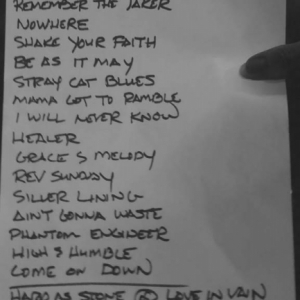 REMEMBER THE TAKER
NOWHERE
SHAKE YOUR FAITH
BE AS IT MAY
STRAY CAT BLUES
MAMA GOT TO RAMBLE
I WILL NEVER KNOW
HEALER
GRACE & MELODY
REV SUNDAY
SILVER LINING
AINT GONNA WASTE
PHANTOM ENGINEER
HIGH & HUMBLE
COME ON DOWN
HARD AS STONE LOVE IN VAIN